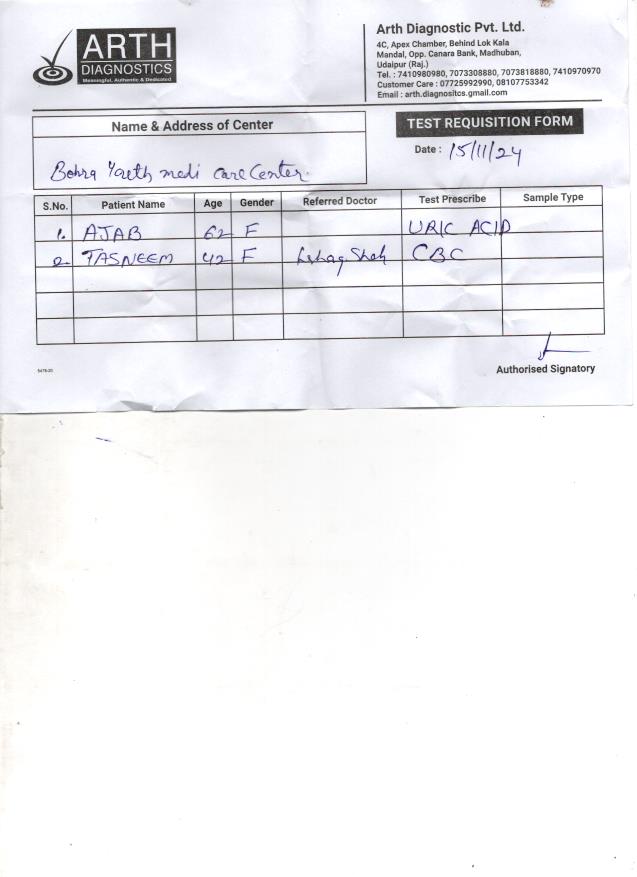 ARTH
DIAGNOSTICS
Meaningful, Authentic & Dedicated
Arth Diagnostic Pvt. Ltd.
4C, Apex Chamber, Behind Lok Kala
Mandal, Opp. Canara Bank, Madhuban,
Udaipur (Raj.)
Tel. : 7410980980, 7073308880, 7073818880, 7410970970
Customer Care : 07725992990, 08107753342
Email : arth.diagnositcs.gmail.com
Name & Address of Center
TEST REQUISITION FORM
Date : 15/11/24
Bohra Youth medi Care Center.
S.No. Patient Name Age Gender Referred Doctor Test Prescribe Sample Type
1. AJAB 62 F URIC ACID
2. TASNEEM 42 F Ishaq Shah CBC
Authorised Signatory